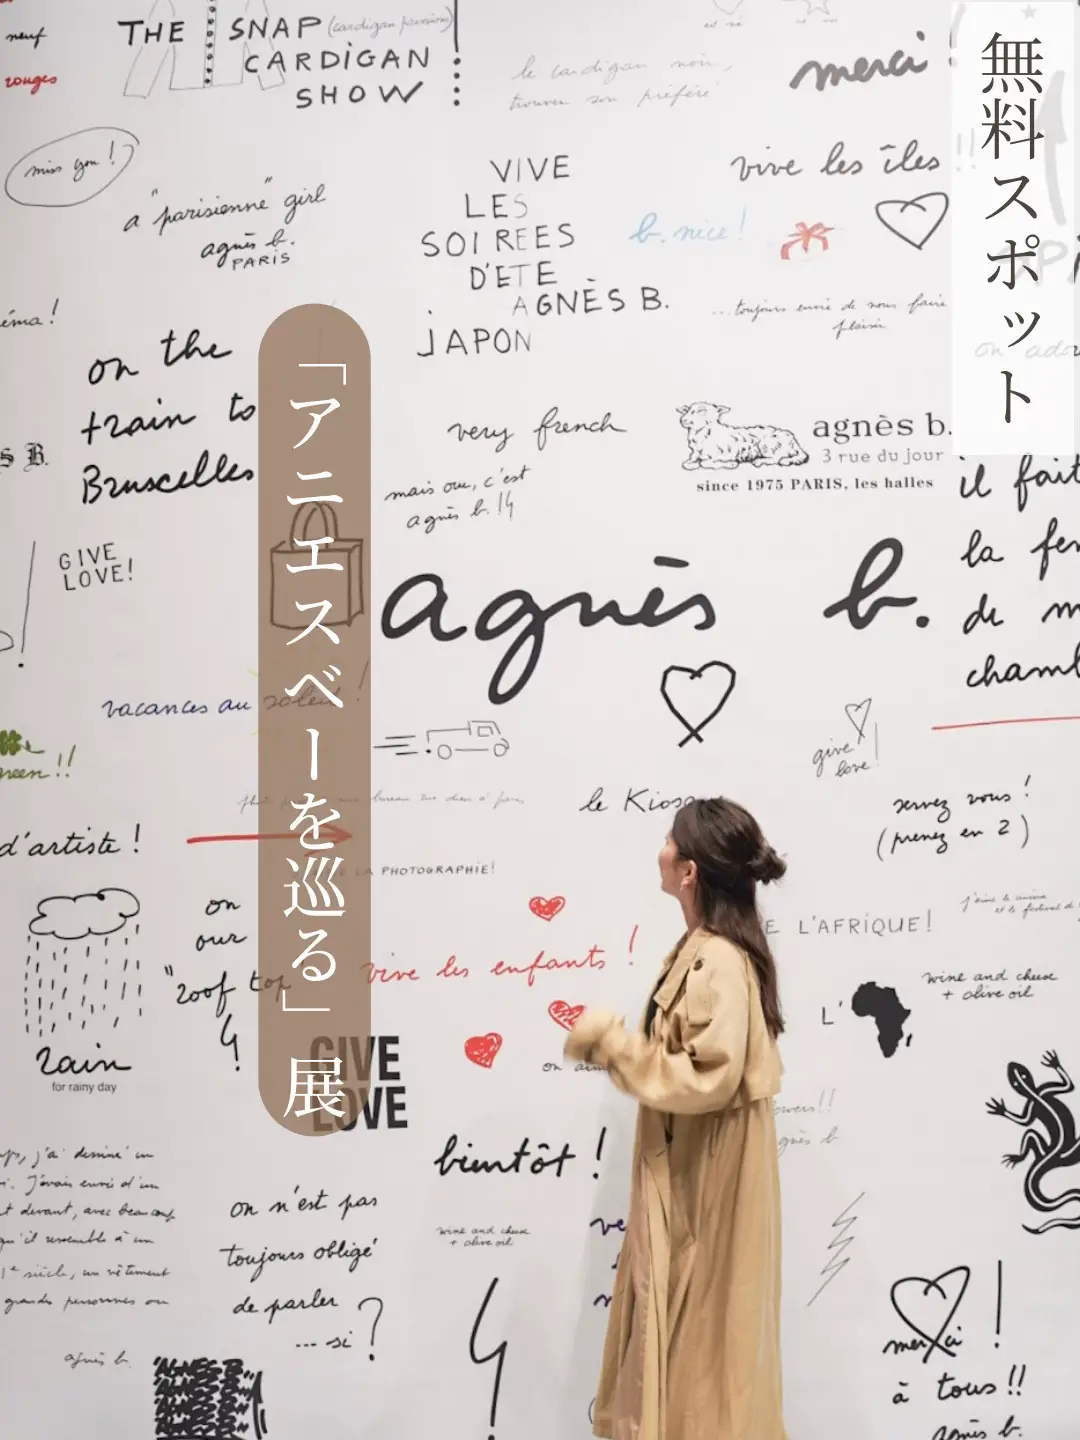 無料スポット
「アニエスベーを巡る」展
neuf
rouges
THE SNAP (cardigan pression)
CARDIGAN
SHOW
le cardigan noir,
trouver son préféré
merci !
miss you !
a "parisienne" girl
agnès b.
PARIS
VIVE
LES
SOIREES
D'ETE
AGNÈS B.
JAPON
vive les îles !!
b. nice !
... toujours envie de vous faire
plaisir
on the
train to
Bruxelles
very french
mais oui, c'est
agnès b. !
agnès b.
3 rue du jour
since 1975 PARIS, les halles
il fait
la
de
GIVE
LOVE!
agnès b.
vacances au soleil !
!!
give
love !
le
servez vous !
(prenez en 2)
d'artiste !
LA PHOTOGRAPHIE!
on
our
"roof top
vive les enfants !
L'AFRIQUE!
wine and cheese
+ olive oil
L'
rain
for rainy day
GIVE
LOVE
bientôt !
on n'est pas
toujours obligé
de parler
... si ?
wine and cheese
+ olive oil
j'ai dessiné un
J'avais envie d'un
devant, avec beaucoup
qu'il ressemble à un
siècle, un vêtement
grandes personnes ou
agnès b.
AGNES B.
merci !
à tous !!
agnès b.